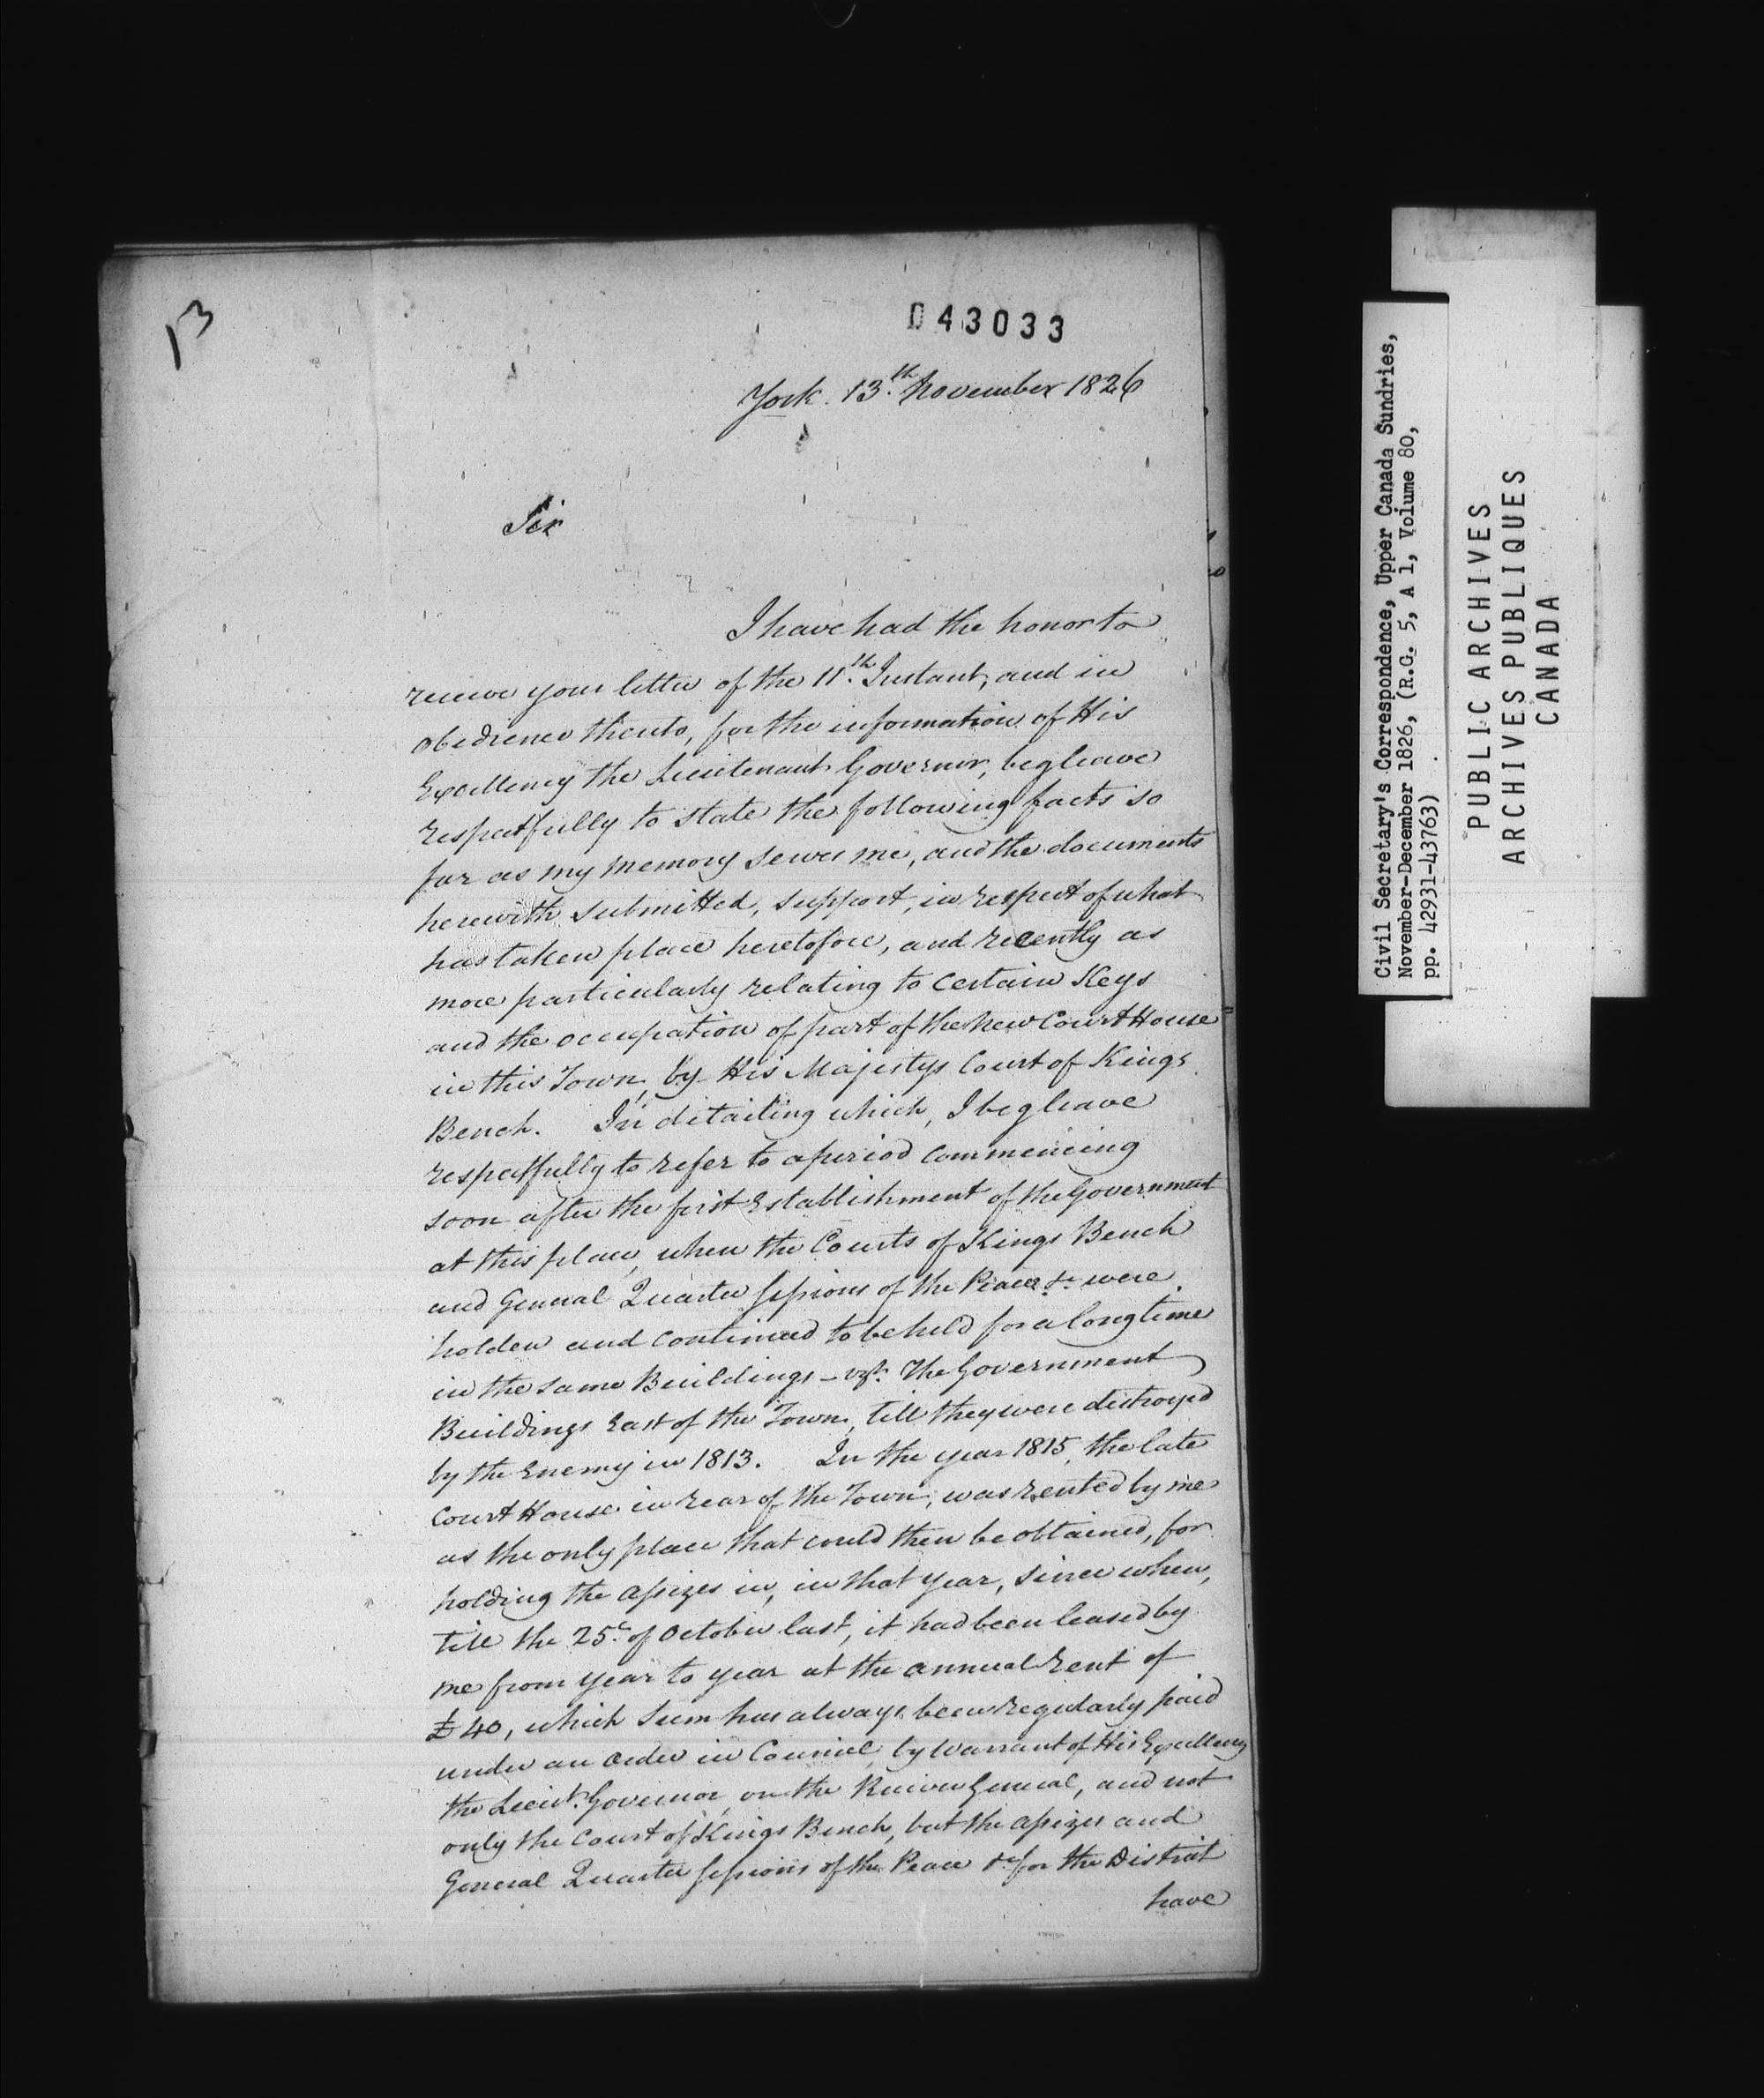 13
043033
York. 13.th November 1826
Sir
I have had the honor to
receive your letter of the 11.th Instant, and in
obedience thereto, for the information of His
Excellency the Lieutenant Governor, beg leave
respectfully to state the following facts so
far as my memory serves me, and the documents
herewith submitted, support, in respect of what
has taken place heretofore, and recently as
more particularly relating to Certain Keys
and the occupation of part of the New Court House
in this Town, by His Majestys Court of Kings
Bench. In detailing which, I beg leave
respectfully to refer to a period commencing
soon after the first Establishment of the Government
at this place, when the Courts of Kings Bench
and General Quarter Sessions of the Peace &c were
holden and continued to be held for a long time
in the same Buildings – vizt. The Government
Buildings East of the Town, till they were destroyed
by the Enemy in 1813. In the year 1815, the late
Court House in rear of the Town, was rented by me
as the only place that could then be obtained, for
holding the Assizes in, in that year, since when,
till the 25th of October last, it had been leased by
me from year to year at the annual rent of
£40, which sum has always been regularly paid
under an Order in Council, by Warrant of His Excellency
the Lieut. Governor, on the Receiver General, and not
only the Court of Kings Bench, but the Assizes and
General Quarter Sessions of the Peace &c for the District
have
Civil Secretary's Correspondence, Upper Canada Sundries,
November-December 1826, (R.G. 5, A 1, Volume 80,
pp. 42931-43763)
PUBLIC ARCHIVES
ARCHIVES PUBLIQUES
CANADA